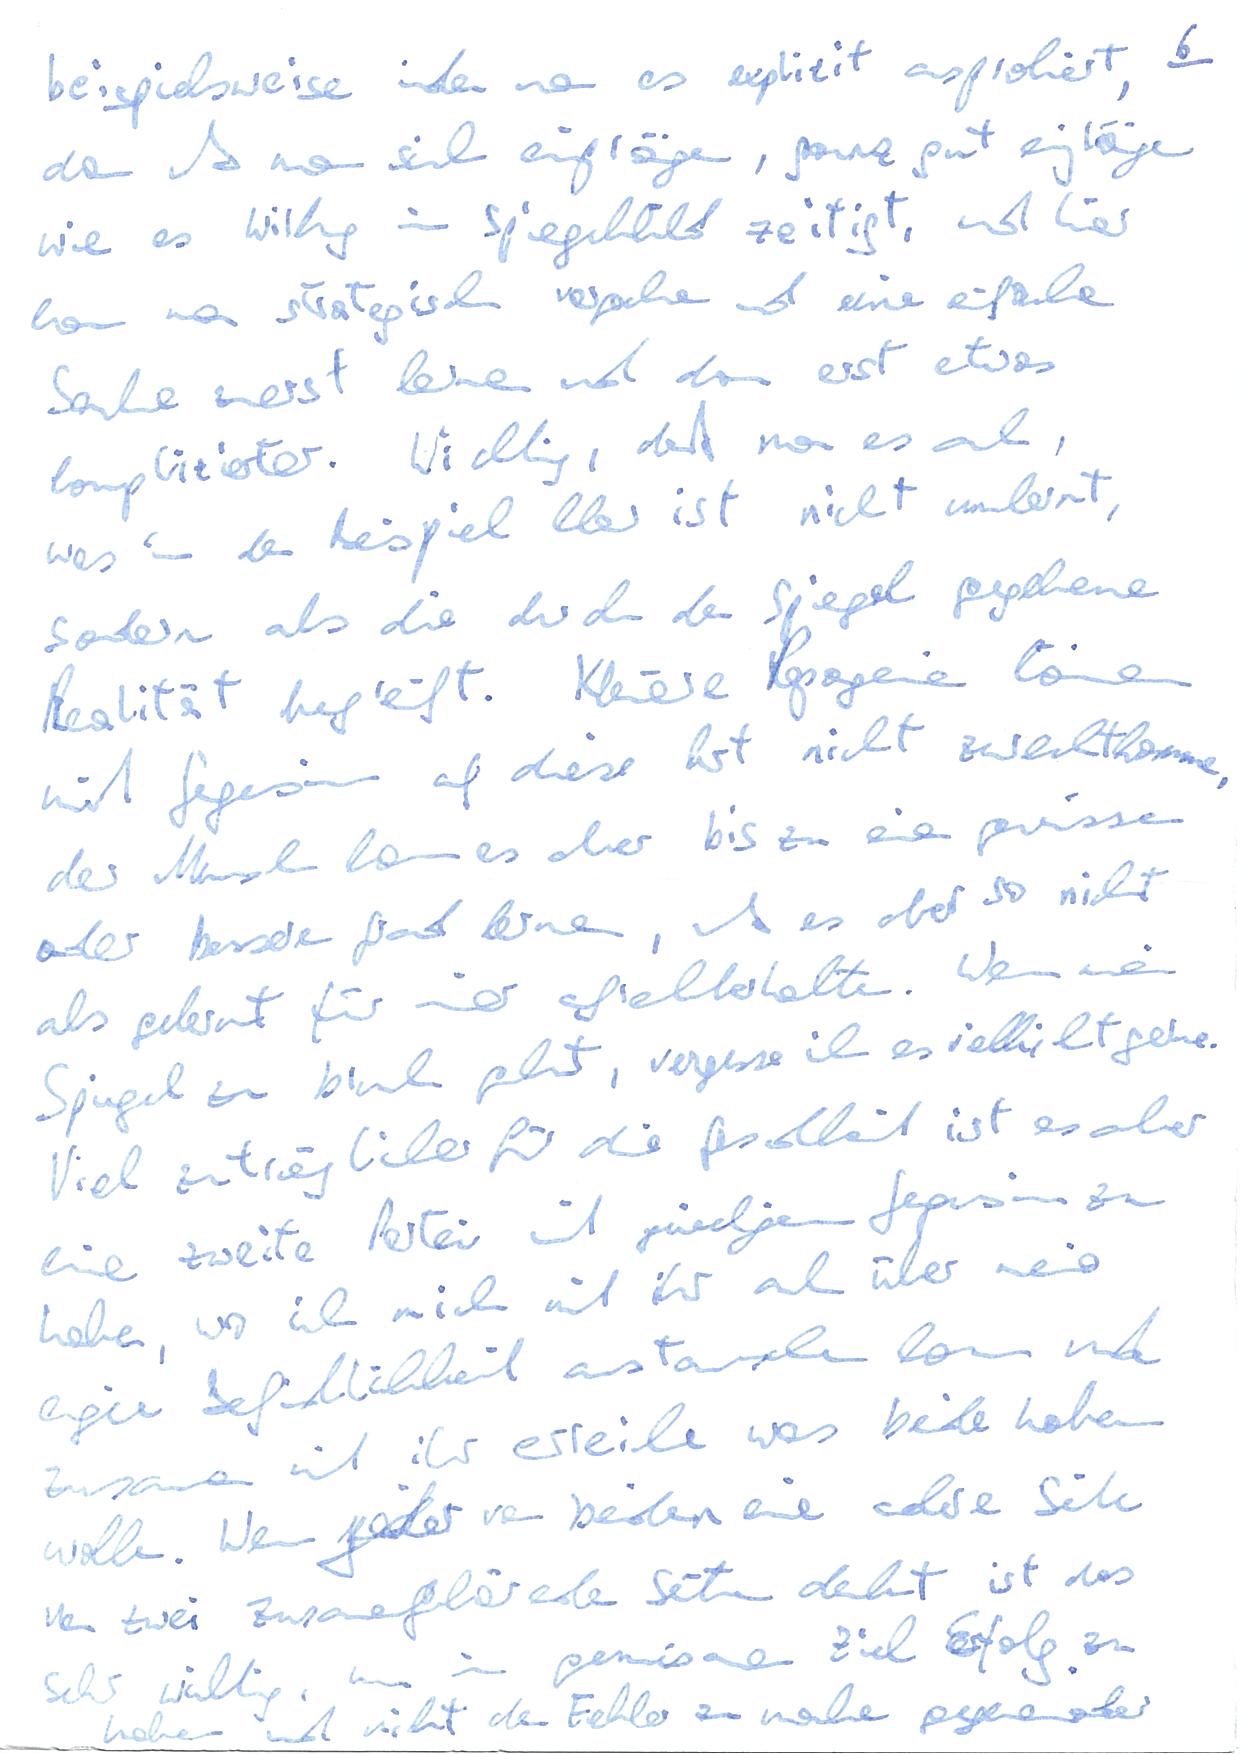 beispielsweise indem man es explizit ausprobiert, 6
dann muß man sich einprägen, ganz gut einprägen
wie es Wirkung im Spiegelbild zeitigt, und hier
kann man strategisch vorgehen und eine einfache
Sache zuerst lernen und dann erst etwas
komplizierter. Wichtig, daß man es auch,
was in dem Beispiel klar ist nicht umlernt,
sondern als die durch den Spiegel gegebene
Realität begreift. Kleinere Papageien können
mit Gegensinn auf diese Art nicht zurechtkommen,
der Mensch kann es aber bis zu einem gewissen
oder besseren Grad lernen, muß es aber so nicht
als gelernt für immer aufrechterhalten. Wenn mein
Spiegel zu Bruch geht, vergesse ich es vielleicht gerne.
Viel zuträglicher für die Gesundheit ist es aber
eine zweite Partei mit gleichem Gegensinn zu
haben, wo ich mich mit ihr auch über meine
eigene Befindlichkeit austauschen kann und
zusammen mit ihr erreiche was beide haben
wollen. Wenn jeder von beiden eine andere Seite
von zwei zusammengehörenden Seiten denkt ist das
sehr wichtig, um im gemeinsamen Ziel Erfolg zu
haben und nicht den Fehler zu machen gegeneinander